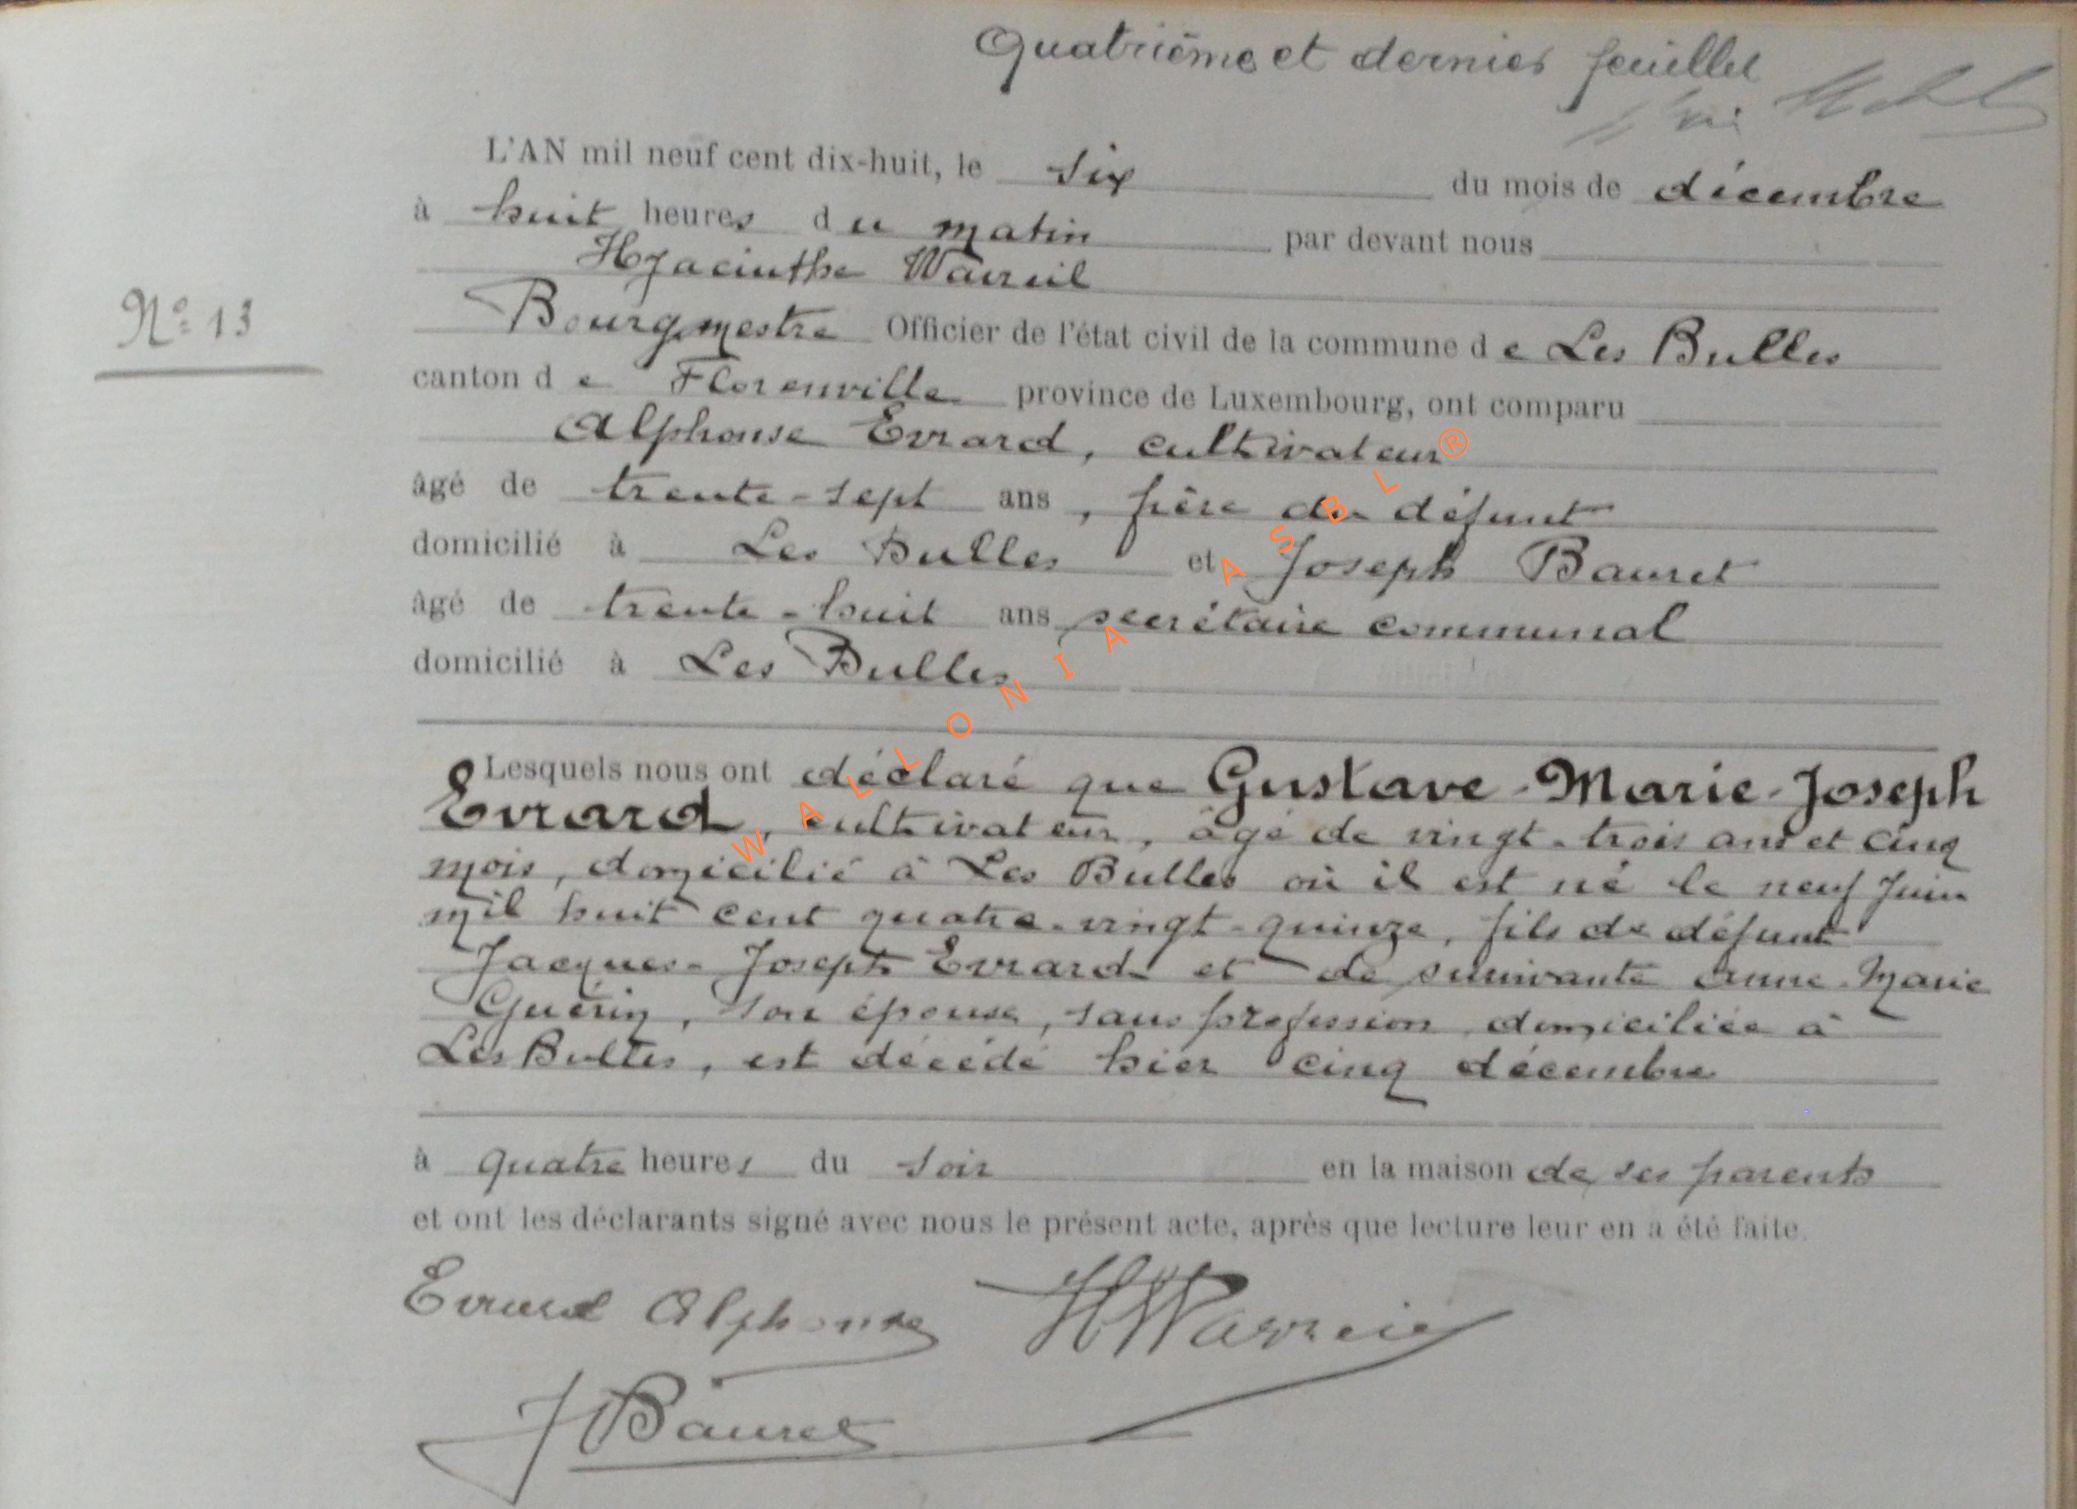 Quatrième et dernier feuillet
L'AN mil neuf cent dix-huit, le six du mois de décembre
à huit heures du matin par devant nous
Hyacinthe
N° 13
Bourgmestre Officier de l'état civil de la commune de Les Bulles
canton de Florenville province de Luxembourg, ont comparu
Alphonse Evrard, cultivateur
âgé de trente-sept ans, frère du défunt
domicilié à Les Bulles et Joseph Bauret
âgé de trente-huit ans secrétaire communal
domicilié à Les Bulles
Lesquels nous ont déclaré que Gustave-Marie-Joseph
Evrard, cultivateur, âgé de vingt-trois ans et cinq
mois, domicilié à Les Bulles où il est né le neuf Juin
mil huit cent quatre-vingt-quinze, fils de défunt
Jacques-Joseph Evrard et de survivante Anne-Marie
Guérin, son épouse, sans profession domiciliée à
Les Bulles, est décédé hier cinq décembre
à quatre heures du soir en la maison de ses parents
et ont les déclarants signé avec nous le présent acte, après que lecture leur en a été faite.
Evrard Alphonse
J Bauret
WALLONIA ASBL®